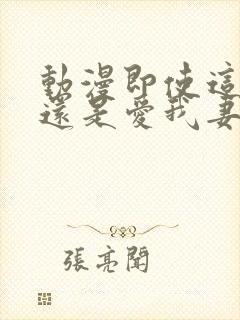 動漫即使這
還是愛我妻
張亮聞